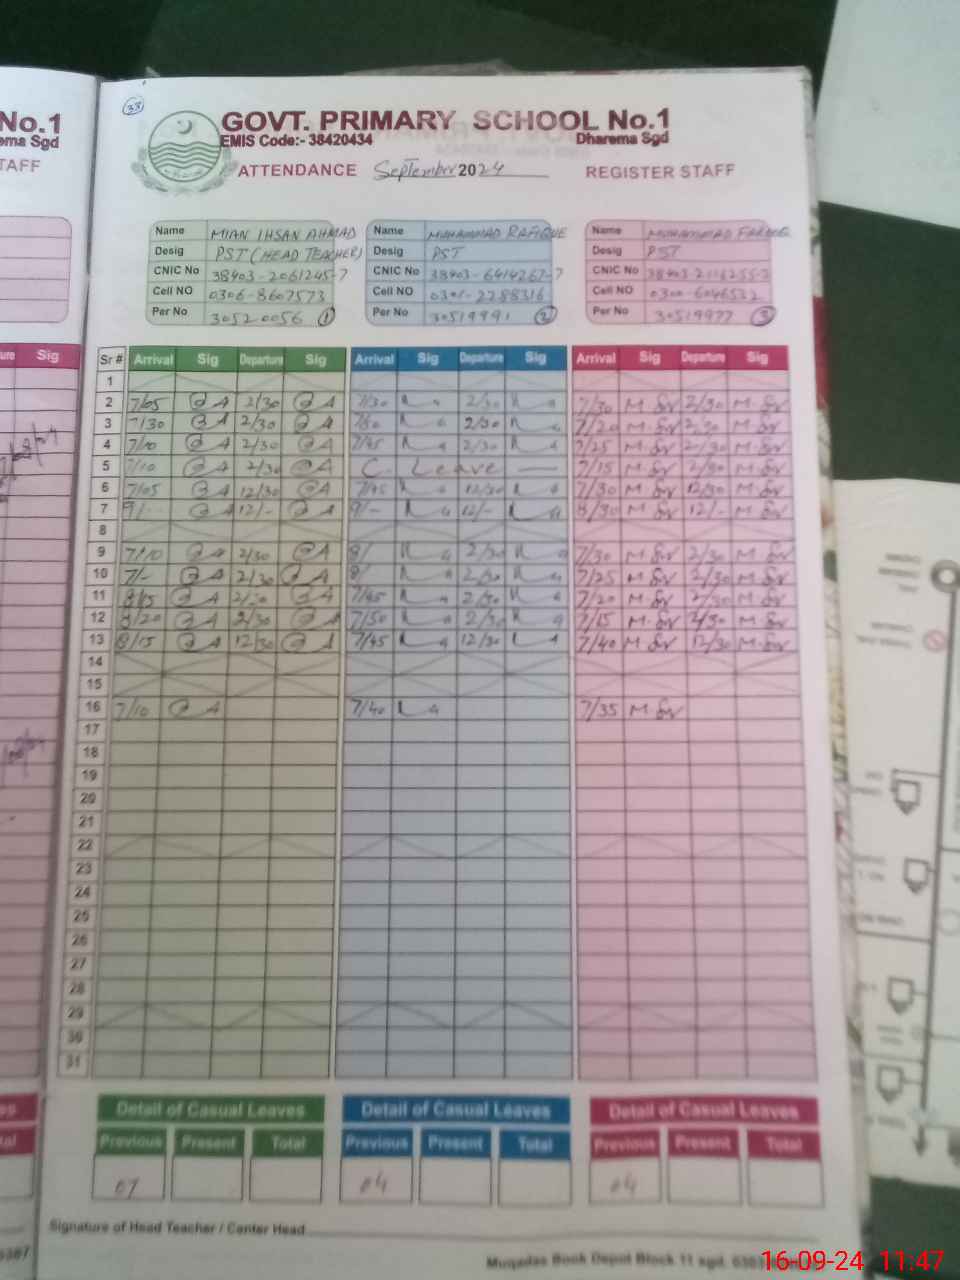 33
GOVT. PRIMARY SCHOOL No.1
EMIS Code:- 38420434 Dharema Sgd
ATTENDANCE September 2024 REGISTER STAFF
No.1
ema Sgd
TAFF
Name MIAN IHSAN AHMAD Name MUHAMMAD RAFIQUE Name MUHAMMAD FAROOQ
Desig PST (HEAD TEACHER) Desig PST Desig PST
CNIC No 38403-2061245-7 CNIC No 38403-6414267-7 CNIC No
Cell NO 0306-8607573 Cell NO Cell NO 0300-6046532
Per No 30520056 1 Per No 30519991 2 Per No 30519977 3
ure Sig
Sr # Arrival Sig Departure Sig Arrival Sig Departure Sig Arrival Sig Departure Sig
1
2 7/05 2/30 7/30 2/30 7/30 2/30
3 7/30 2/30 7/50 2/30 7/20 2/30
4 7/10 2/30 7/45 2/30 7/25 2/30
5 7/10 2/30 C. Leave 7/15 2/30
6 7/05 12/30 7/45 12/30 7/30 12/30
7 9/- 12/- 9/- 12/- 8/30 12/-
8
9 7/10 2/30 8/ 2/30 7/30 2/30
10 7/- 2/30 8/ 2/30 7/25 2/30
11 8/15 2/30 7/45 2/30 7/20 2/30
12 8/20 2/30 7/50 2/30 7/15 2/30
13 8/15 12/30 7/45 12/30 7/40 12/30
14
15
16 7/10 7/40 7/35
17
18
19
20
21
22
23
24
25
26
27
28
29
30
31
Detail of Casual Leaves Detail of Casual Leaves Detail of Casual Leaves
Previous Present Total Previous Present Total Previous Present Total
07 04 04
Signature of Head Teacher / Center Head
Muqadas Book Depot Block 11 sgd.
16-09-24 11:47